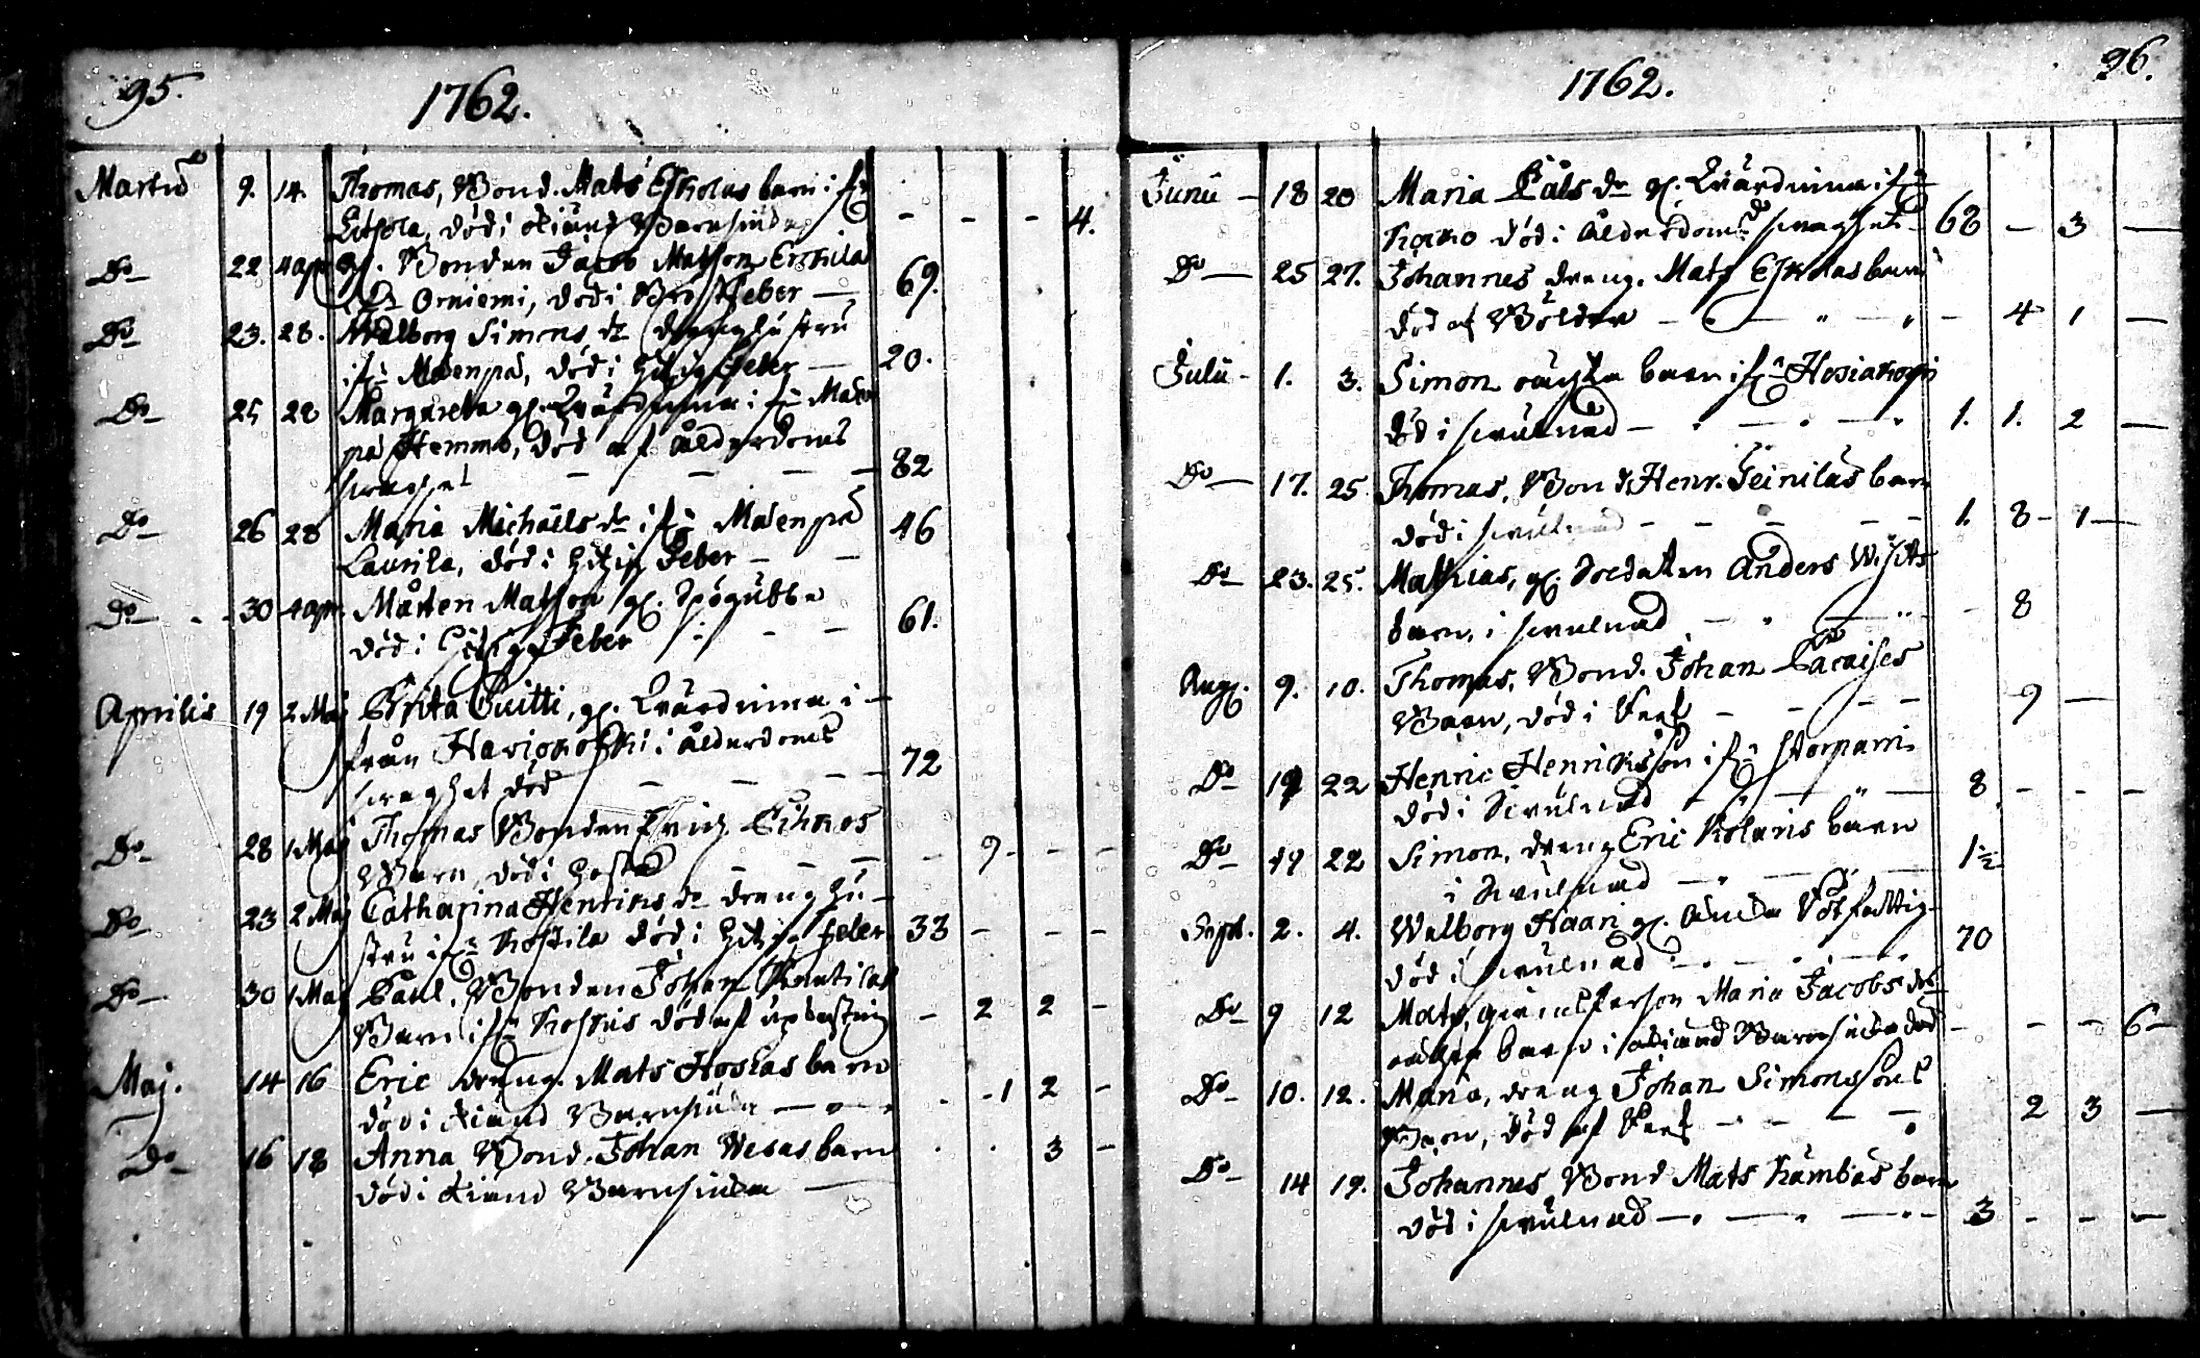 95.
1762.
Martii 9. 14. Thomas, Bond. Mats Eskolas barn i fr
Eitsola, död i okiend Barnsiuka - - - 4.
Do 22 4 apr gl. Bonden Jacob Matsson Erkkila
fr Orniemi, död i Bröstfeber — 69.
Do 23. 28. Walborg Simons dr drenghustru
i fr Matenpä, död i Hitzig Feber — 20.
Do 25 28 Margareta gl. Qvärdinna i fr Maten
pä Hemmo, död af Ålderdoms
svaghet — — — — 82
Do 26 28 Maria Michaëls dr i fr Matenpä
Laurila, död i Hitzig Feber — — 46
Do 30 4 apr. Mårten Matsson gl. Spögubbe
död i Hitzig Feber — — 61.
Aprilis 19 2 Maj Brita Puitti, gl. Qvärdinna i
från Harjonoski i ålderdoms
svaghet död — — — 72
Do 28 1 Maj Thomas Bonden Eric Eihkos
Barn, död i Hosta — — — - 9 - -
Do 23 2 Maj Catharina Henriks dr dreng hu-
stru i fr Kostila död i Hitzig feber 33 - - -
Do 30 1 Maj Paul, Bonden Johan Anttilas
Barn i fr Koskis död af upkastning - 2 2 -
Maj. 14 16 Eric dreng. Mats Hoskas barn
död i okiend Barnsiuka — - 1 2 -
Do 16 18 Anna Bond. Johan Wesas barn
död i okiend Barnsiuka — . . 3 -
96.
1762.
Junii - 18 20 Maria Påls dr gl. Qvärdinna i fr
Koko död i ålderdoms svaghet 68 - 3 -
Do — 25 27. Johannes dreng. Mats Eskolas barn
död af Bölder — - 4 1 -
Julii - 1. 3. Simon oägta barn i fr Hosiakoski
död i svulnad — 1. 1. 2 -
Do — 17. 25 Thomas, Bond. Henr. Jeinilas barn
död i svulnad - - - - 1. 8 - 1 -
Do 23. 25. Mathias, gl. Soldaten Anders Wisits
barn, i svulnad — - 8
Aug. 9. 10. Thomas, Bond. Johan Paraises
Barn, död i - - - - 9 -
Do 19 22 Henric Henriksson i fr Storparri
död i Svulnad — 8 - - -
Do 19 22 Simon, dreng Eric Kolaris barn
i Svulnad — 1½
Sept. 2. 4. Walborg Haari gl. fattig
död i svulnad — 70
Do 9 12 Mats, qvinsperson Maria Jacobs drs
oägta barn i okiend Barnsiuka död - - - 6 -
Do 10. 12. Maria, dreng Johan Simonssons
Barn, död af - - - 2 3 -
Do 14 19. Johannes Bond Mats Kämbäs barn
död i svulnad — 3 - - -